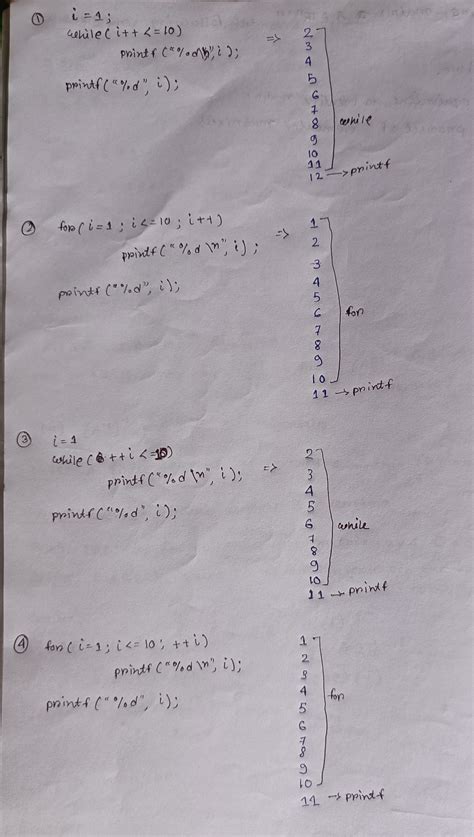 ① i = 1;
while( i++ <= 10) => 2
printf ("%d\n", i); 3
4
printf("%d", i); 5
6
7
8 while
9
10
11
12 → printf
② for( i=1 ; i<=10 ; i++) => 1
printf("%d \n", i); 2
3
printf("%d", i); 4
5
6 for
7
8
9
10
11 → printf
③ i = 1
while( ++i <= 10) 2
printf("%d \n", i); => 3
4
printf("%d", i); 5
6 while
7
8
9
10
11 → printf
④ for( i=1; i<=10; ++i) 1
printf("%d \n", i); 2
3
printf("%d", i); 4 for
5
6
7
8
9
10
11 → printf